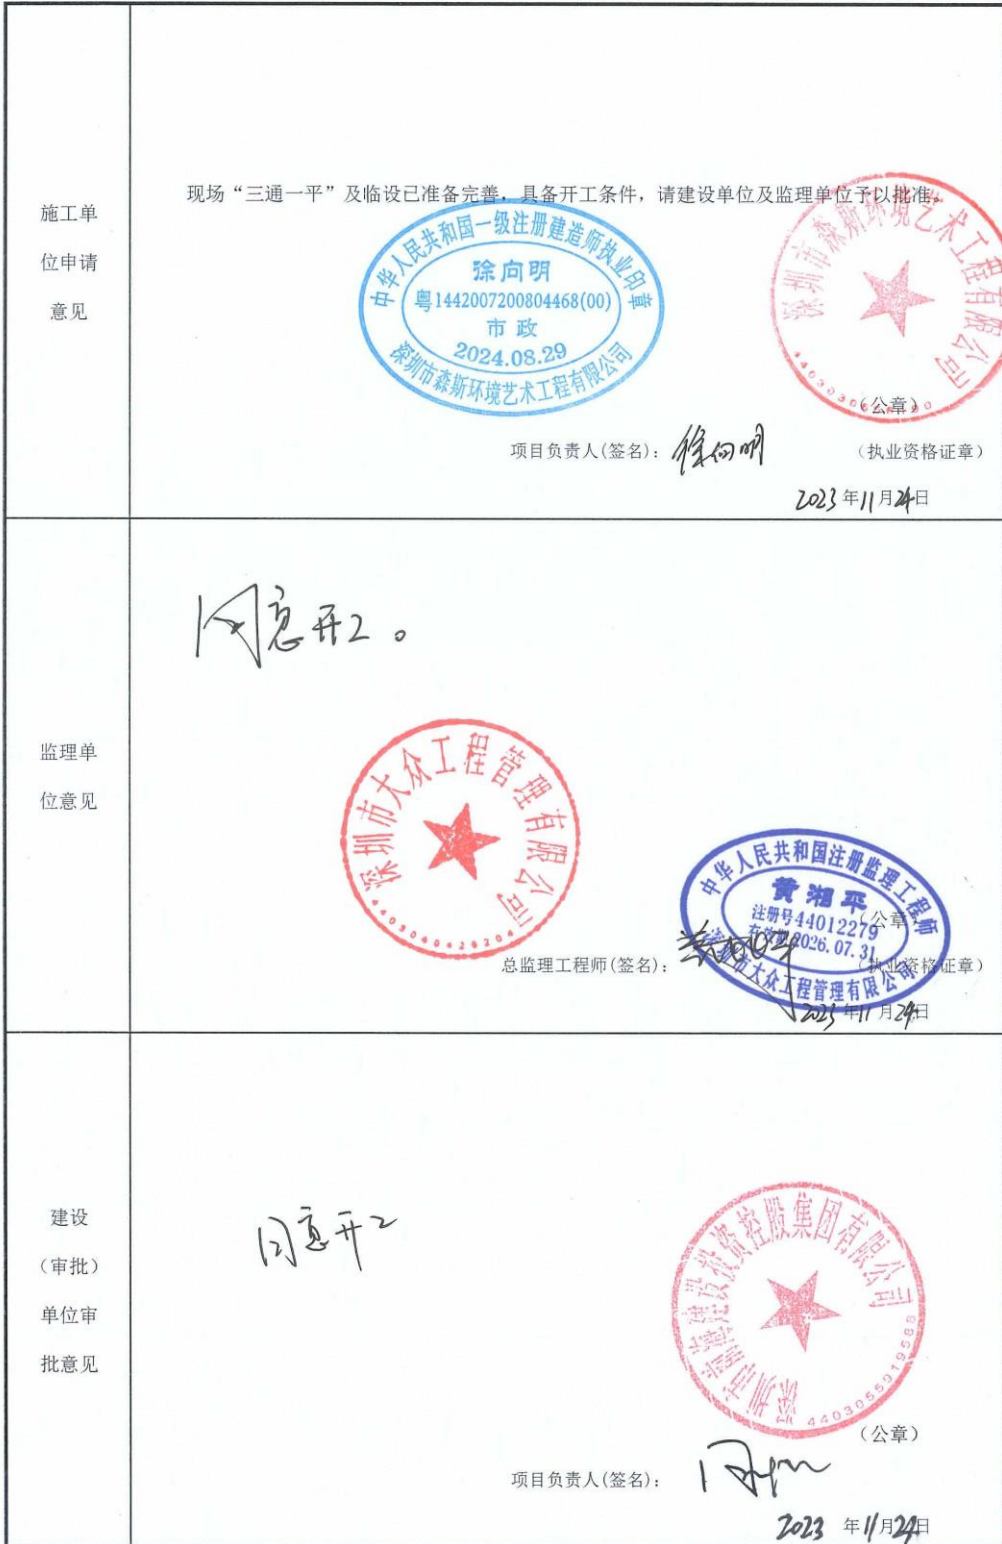 施工单
位申请
意见
现场“三通一平”及临设已准备完善，具备开工条件，请建设单位及监理单位予以批准。
中华人民共和国一级注册建造师执业印章
徐向明
粤1442007200804468(00)
市政
2024.08.29
深圳市森斯环境艺术工程有限公司
深圳市森斯环境艺术工程有限公司
（公章）
项目负责人(签名)：徐向明 （执业资格证章）
2023年11月24日
监理单
位意见
同意开工。
深圳市大众工程管理有限公司
4403040426204
中华人民共和国注册监理工程师
黄湘平
注册号44012279
有效期2026.07.31
深圳市大众工程管理有限公司
（公章）
总监理工程师(签名)：黄湘平 （执业资格证章）
2023年11月24日
建设
（审批）
单位审
批意见
同意开工
建设投资控股集团有限公司
4403055919588
（公章）
项目负责人(签名)：
2023 年11月24日